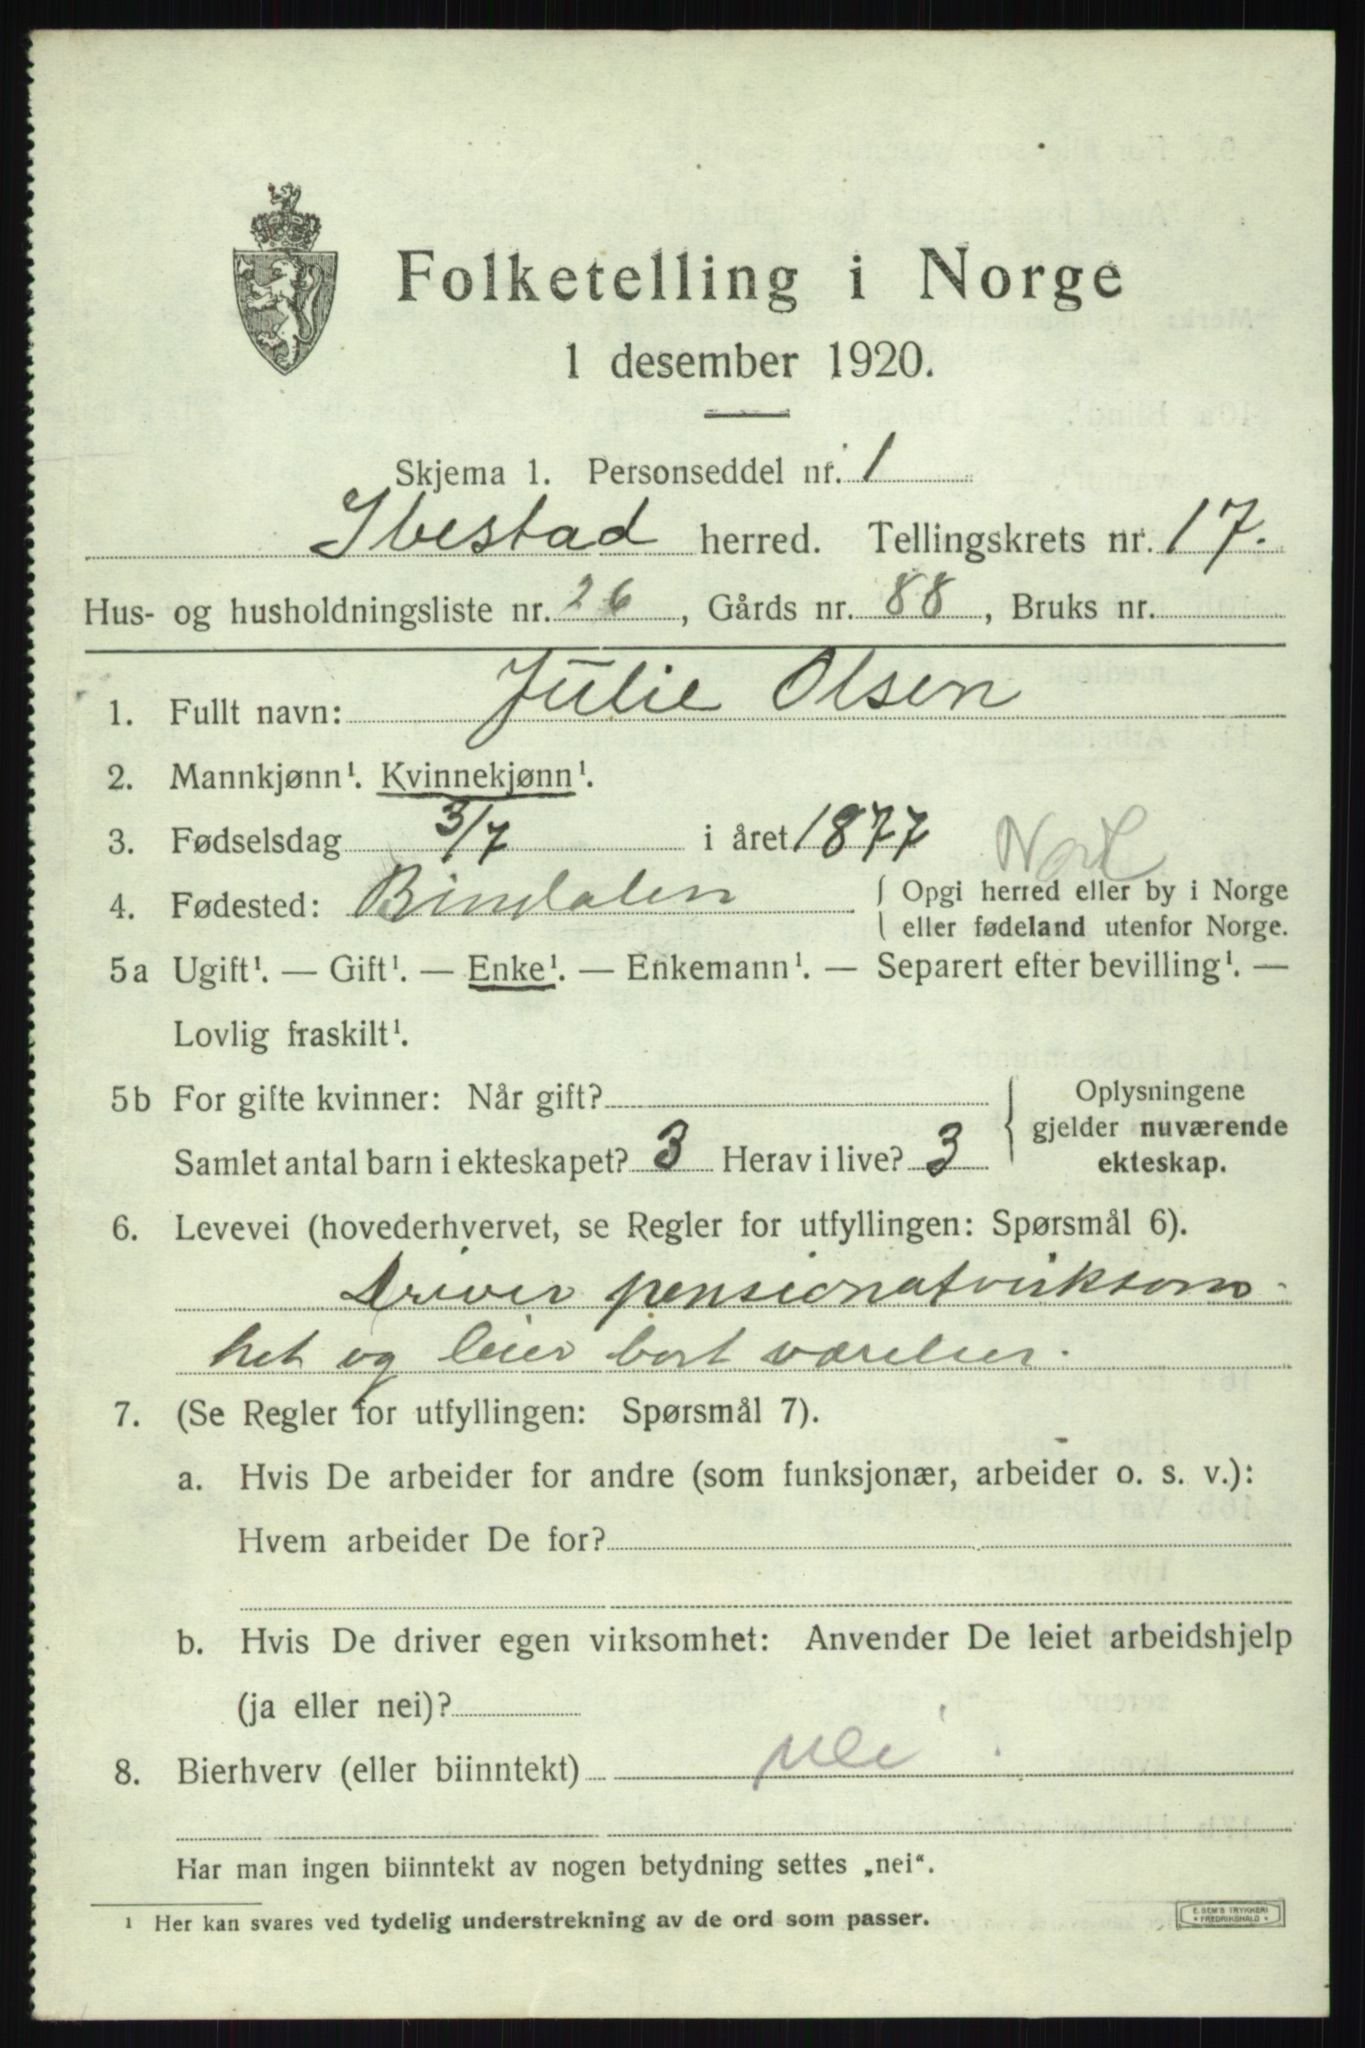 Folketelling i Norge
1 desember 1920.
Skjema 1. Personseddel nr. 1
Ibestad herred. Tellingskrets nr. 17.
Hus- og husholdningsliste nr. 26, Gårds nr. 88, Bruks nr.
1. Fullt navn: Julie Olsen
2. Mannkjønn¹. Kvinnekjønn¹.
3. Fødselsdag 3/7 i året 1877
Nordl
4. Fødested: Bindalen { Opgi herred eller by i Norge
eller fødeland utenfor Norge.
5a Ugift¹. — Gift¹. — Enke¹. — Enkemann¹. — Separert efter bevilling¹. —
Lovlig fraskilt¹.
5b For gifte kvinner: Når gift? { Oplysningene
gjelder nuværende
Samlet antal barn i ekteskapet? 3 Herav i live? 3 ekteskap.
6. Levevei (hovederhvervet, se Regler for utfyllingen: Spørsmål 6).
Driver pensionatvirksom-
het og leier bort værelser.
7. (Se Regler for utfyllingen: Spørsmål 7).
a. Hvis De arbeider for andre (som funksjonær, arbeider o. s. v.):
Hvem arbeider De for?
b. Hvis De driver egen virksomhet: Anvender De leiet arbeidshjelp
(ja eller nei)?
8. Bierhverv (eller biinntekt) nei.
Har man ingen biinntekt av nogen betydning settes „nei“.
¹ Her kan svares ved tydelig understrekning av de ord som passer.
E. SEM'S TRYKKERI
• FREDRIKSHALD •